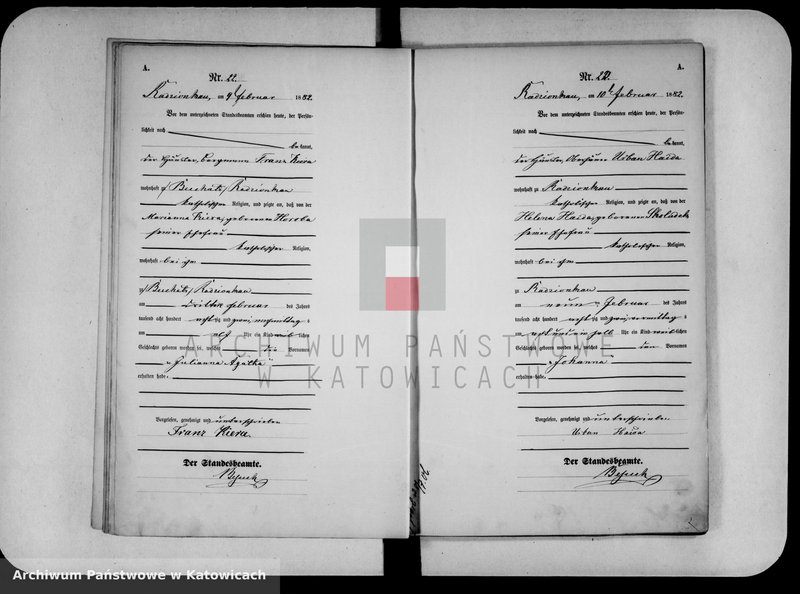 A.
Nr. 22.
Radzionkau, am 9t Februar 1882.
Vor dem unterzeichneten Standesbeamten erschien heute, der Persön-
lichkeit nach
bekannt,
der Häusler, Bergmann Franz Kiera
wohnhaft zu Radzionkau
katholischer Religion, und zeigte an, daß von der
Marianna Kiera, geborenen Horoba
seiner Ehefrau
katholischer Religion,
wohnhaft bei ihm
zu Radzionkau
am dritten Februar des Jahres
tausend acht hundert achtzig und zwei, nachmittag s
um Uhr ein Kind weiblichen
Geschlechts geboren worden sei, welches die Vornamen
Julianna Agathe
erhalten habe.
Vorgelesen, genehmigt und unterschrieben
Franz Kiera.
Der Standesbeamte.
A.
Nr. 22.
Radzionkau, am 10t Februar 1882.
Vor dem unterzeichneten Standesbeamten erschien heute, der Persön-
lichkeit nach
bekannt,
der Häusler, Urban Haida
wohnhaft zu Radzionkau
katholischer Religion, und zeigte an, daß von der
Helena Haida, geborenen
seiner Ehefrau
katholischer Religion,
wohnhaft bei ihm
zu Radzionkau
am neunten Februar des Jahres
tausend acht hundert achtzig und zwei, vormittag s
um acht und ein halb Uhr ein Kind weiblichen
Geschlechts geboren worden sei, welches den Vornamen
Johanna
erhalten habe.
Vorgelesen, genehmigt und unterschrieben
Urban Haida
Der Standesbeamte.
ARCHIWUM PAŃSTWOWE
W KATOWICACH
Archiwum Państwowe w Katowicach